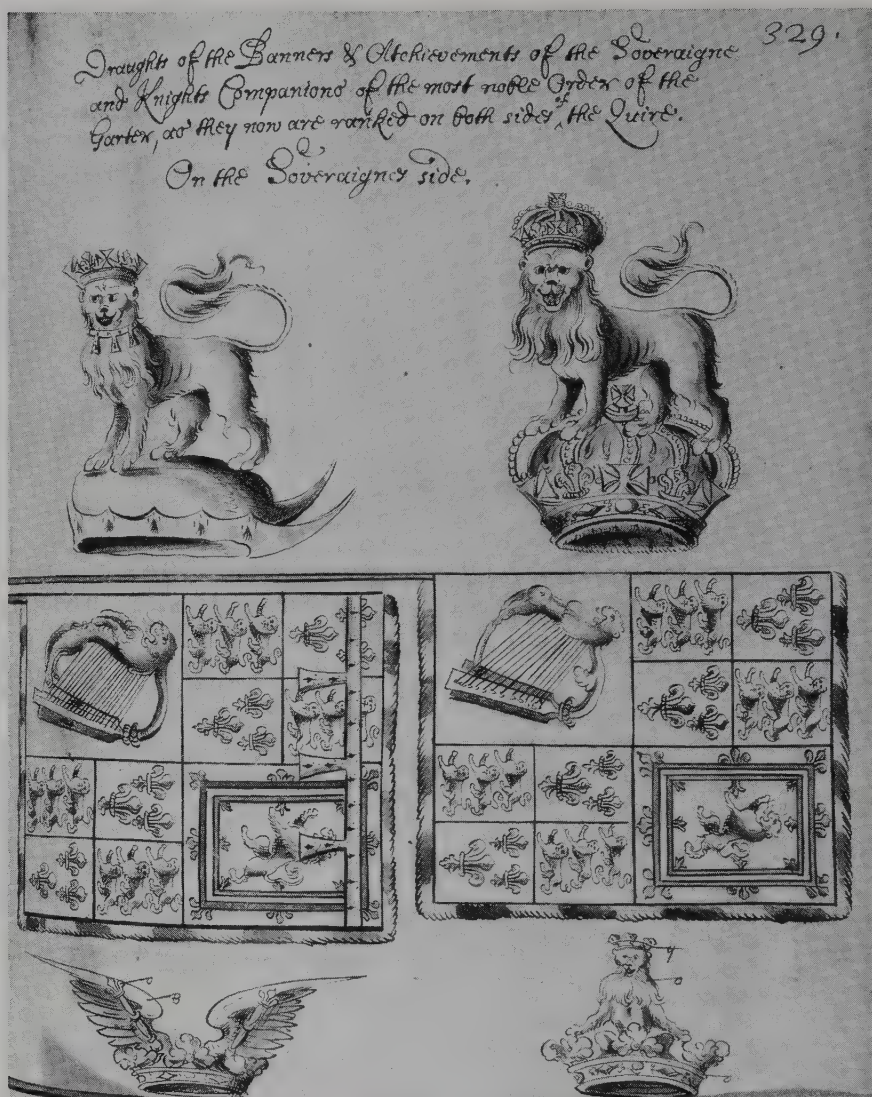 329.
Draughts of the Banners & Atchievements of the Soveraigne
and Knights Companions of the most noble Order of the
Garter, as they now are ranked on both sides of the Quire.
On the Soveraignes side.